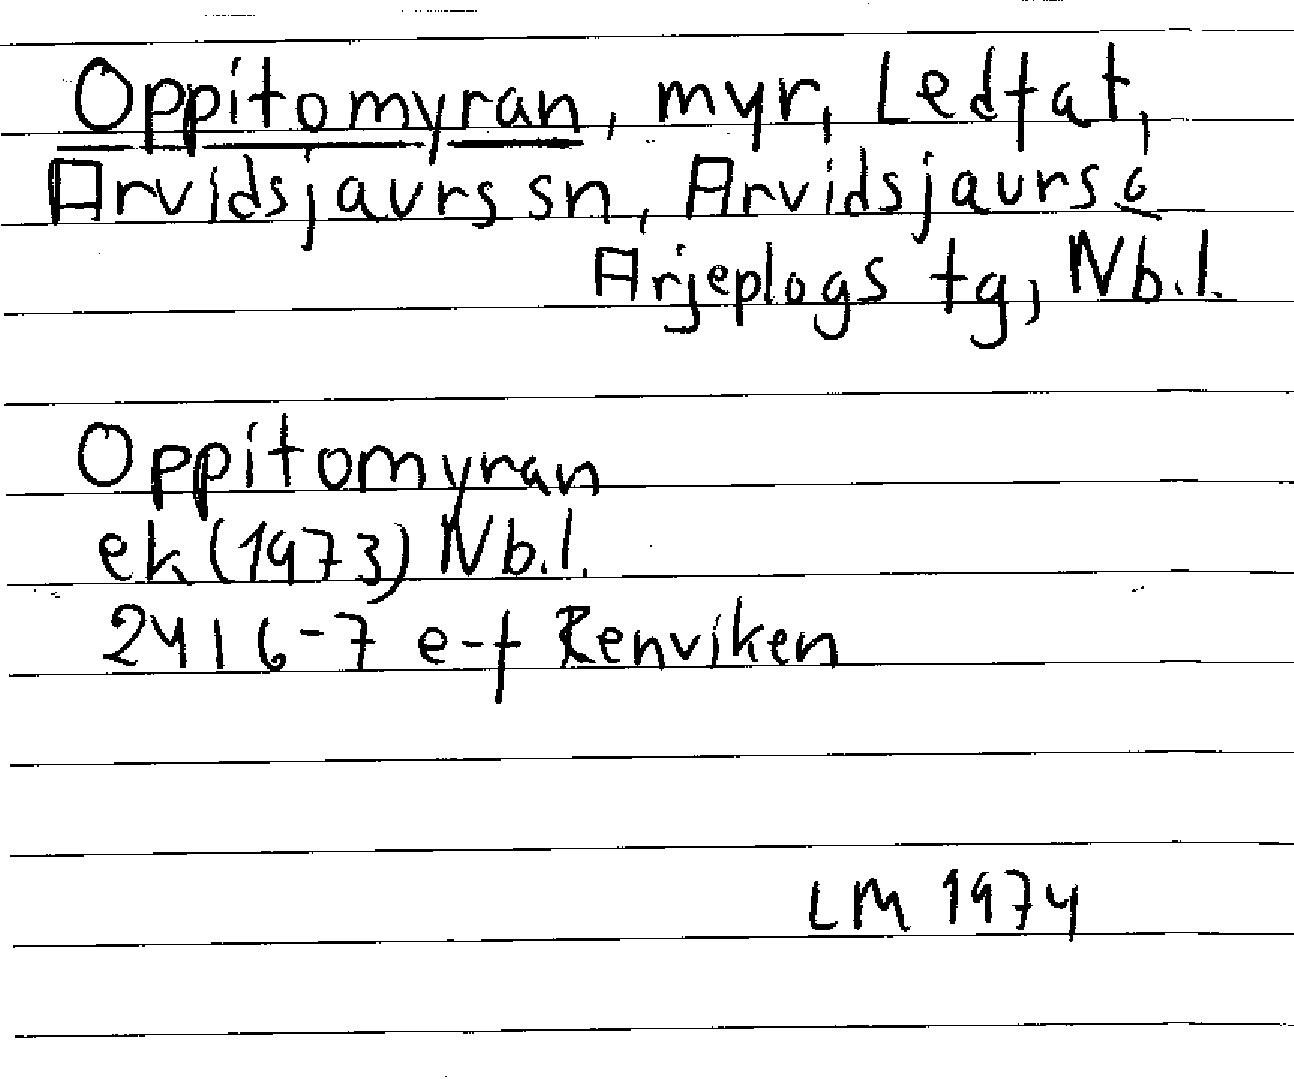 Oppitomyran, myr, Ledfat,
Arvidsjaurs sn, Arvidsjaurs o
Arjeplogs tg, Nb.l.
Oppitomyran
ek (1973) Nb.l.
24I 6-7 e-f Renviken
LM 1974